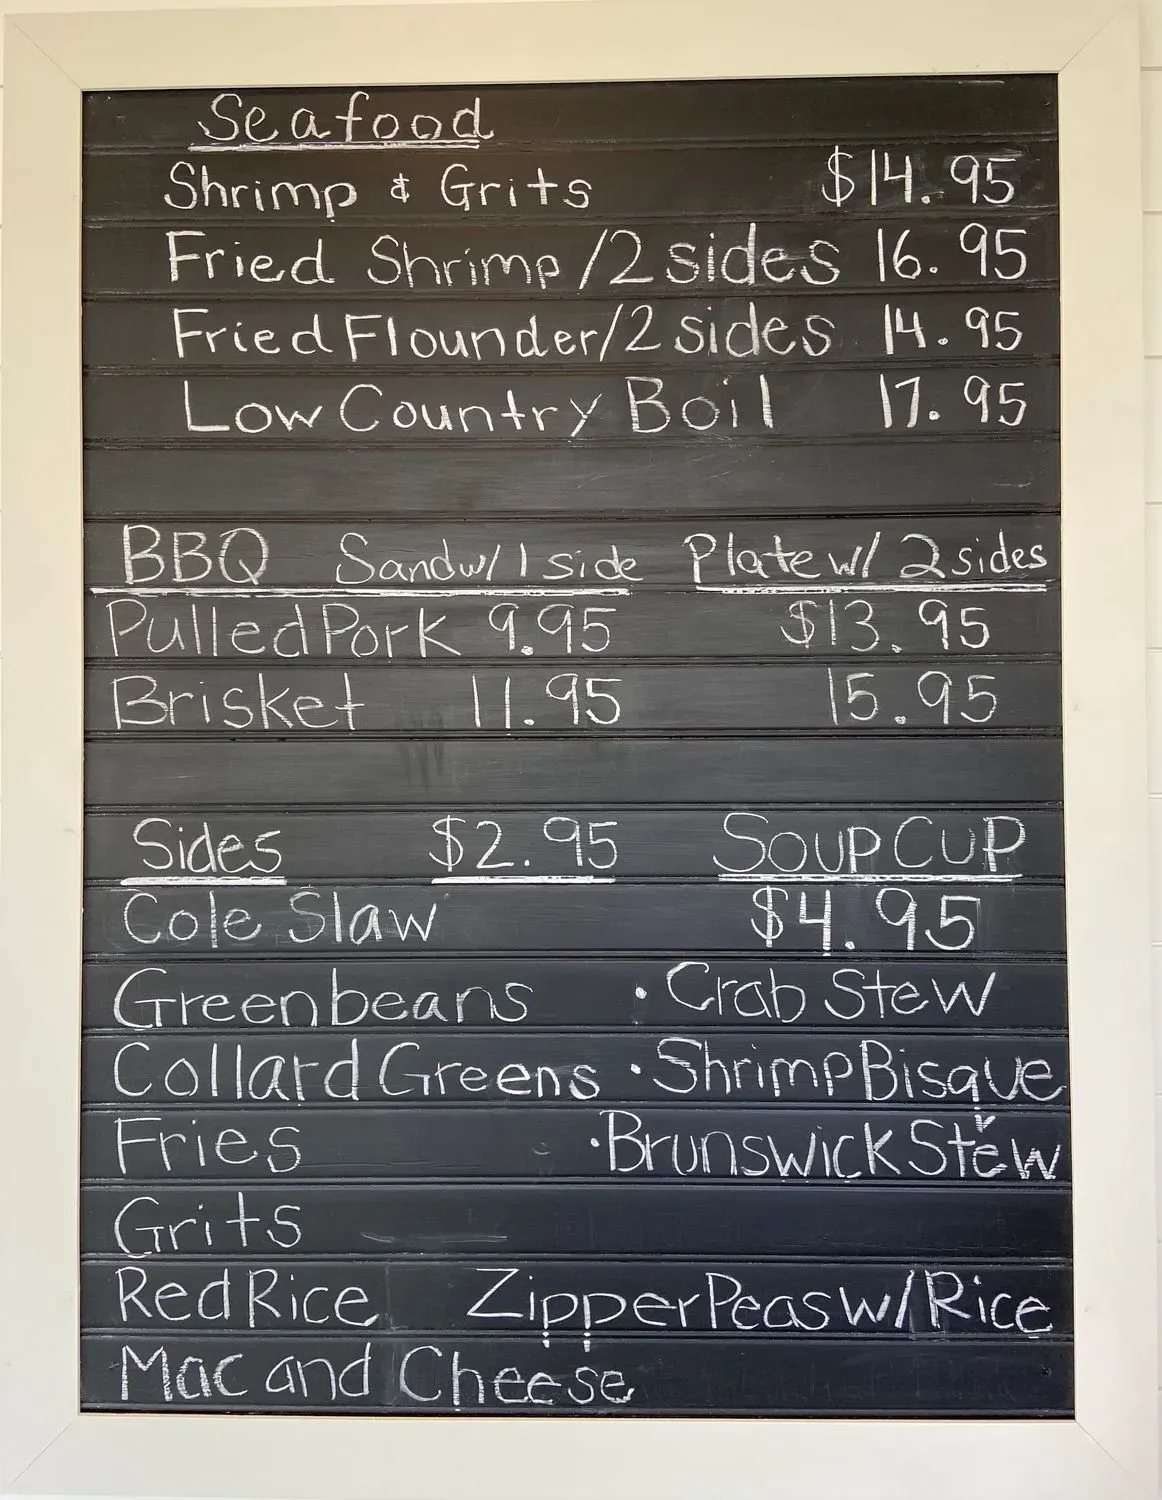 Seafood
Shrimp & Grits $14.95
Fried Shrimp/2 sides 16.95
Fried Flounder/2 sides 14.95
Low Country Boil 17.95
BBQ Sand w/ 1 side Plate w/ 2 sides
Pulled Pork 9.95 $13.95
Brisket 11.95 15.95
Sides $2.95 Soup Cup
Cole Slaw $4.95
Greenbeans · Crab Stew
Collard Greens · Shrimp Bisque
Fries · Brunswick Stew
Grits
Red Rice Zipper Peas w/ Rice
Mac and Cheese